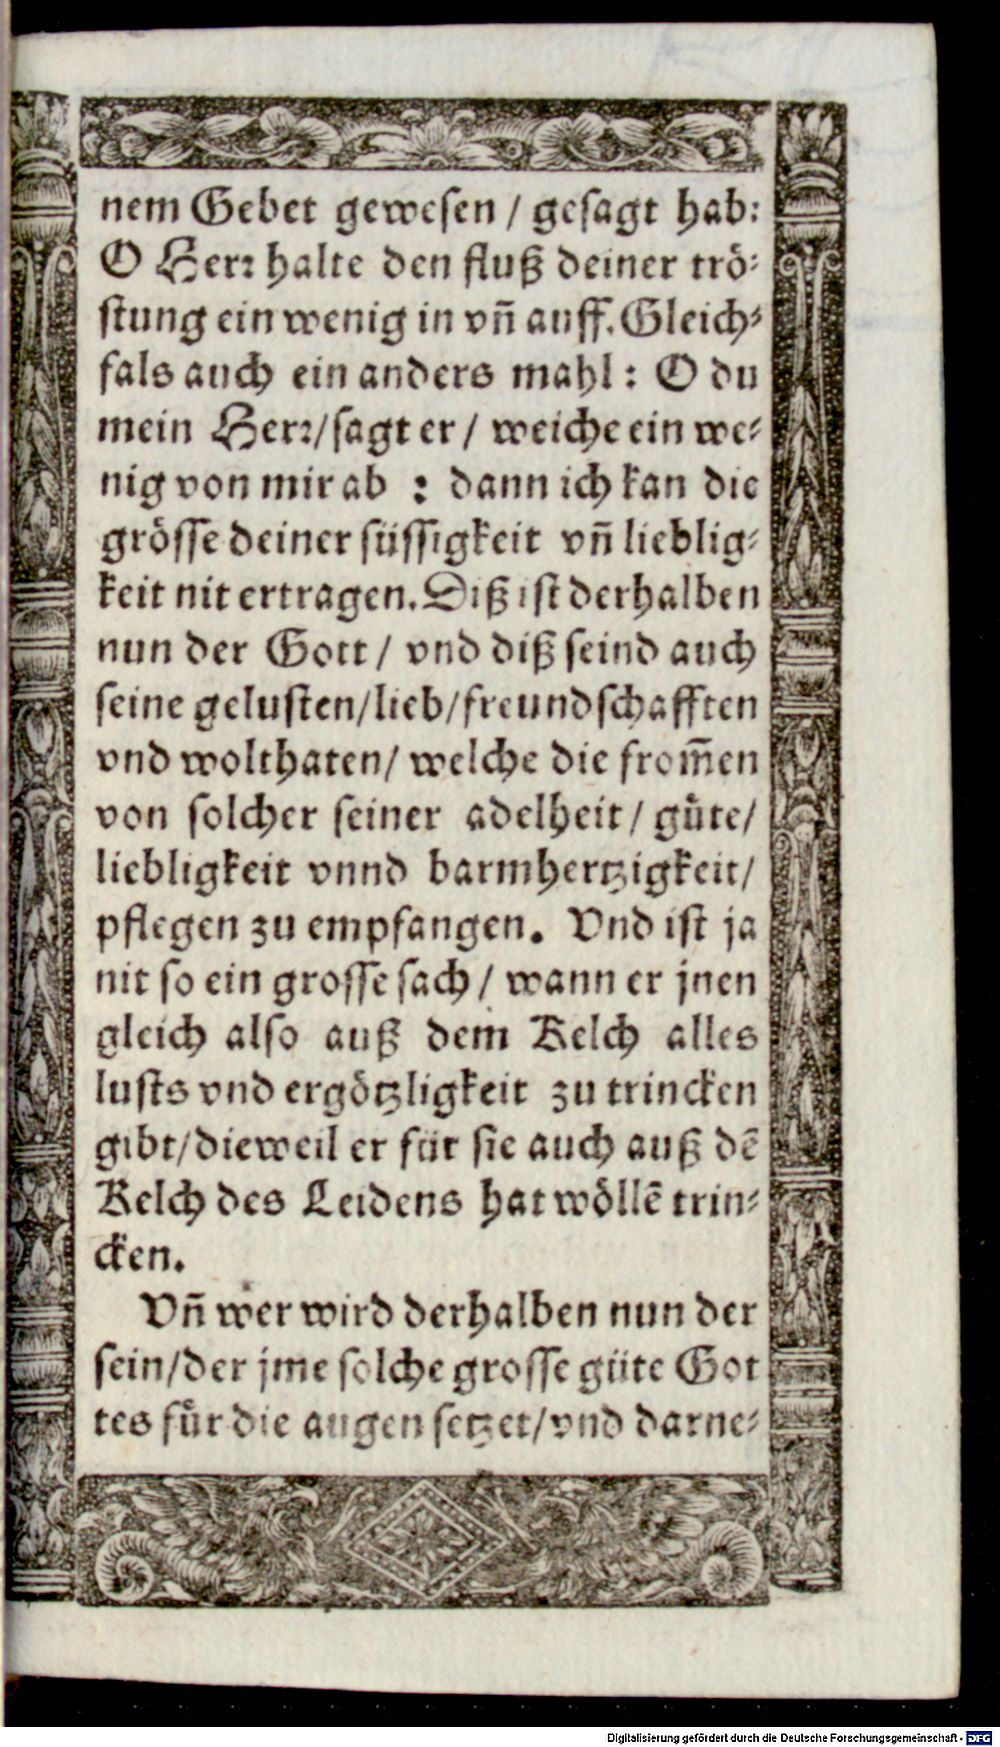 nem Gebet gewesen / gesagt hab:
O Herr halte den fluß deiner trö-
stung ein wenig in vñ auff. Gleich-
fals auch ein anders mahl: O du
mein Herr/ sagt er / weiche ein we-
nig von mir ab : dann ich kan die
grösse deiner süssigkeit vñ lieblig-
keit nit ertragen. Diß ist derhalben
nun der Gott / vnd diß seind auch
seine gelusten/lieb/freundschafften
vnd wolthaten/ welche die from̃en
von solcher seiner adelheit / guͤte/
liebligkeit vnnd barmhertzigkeit/
pflegen zu empfangen. Vnd ist ja
nit so ein grosse sach / wann er jnen
gleich also auß dem Kelch alles
lusts vnd ergötzligkeit zu trincken
gibt/dieweil er für sie auch auß dẽ
Kelch des Leidens hat wöllẽ trin-
cken.
Vñ wer wird derhalben nun der
sein/der jme solche grosse güte Got
tes fuͤr die augen setzet/vnd darne-
Digitalisierung gefördert durch die Deutsche Forschungsgemeinschaft - DFG